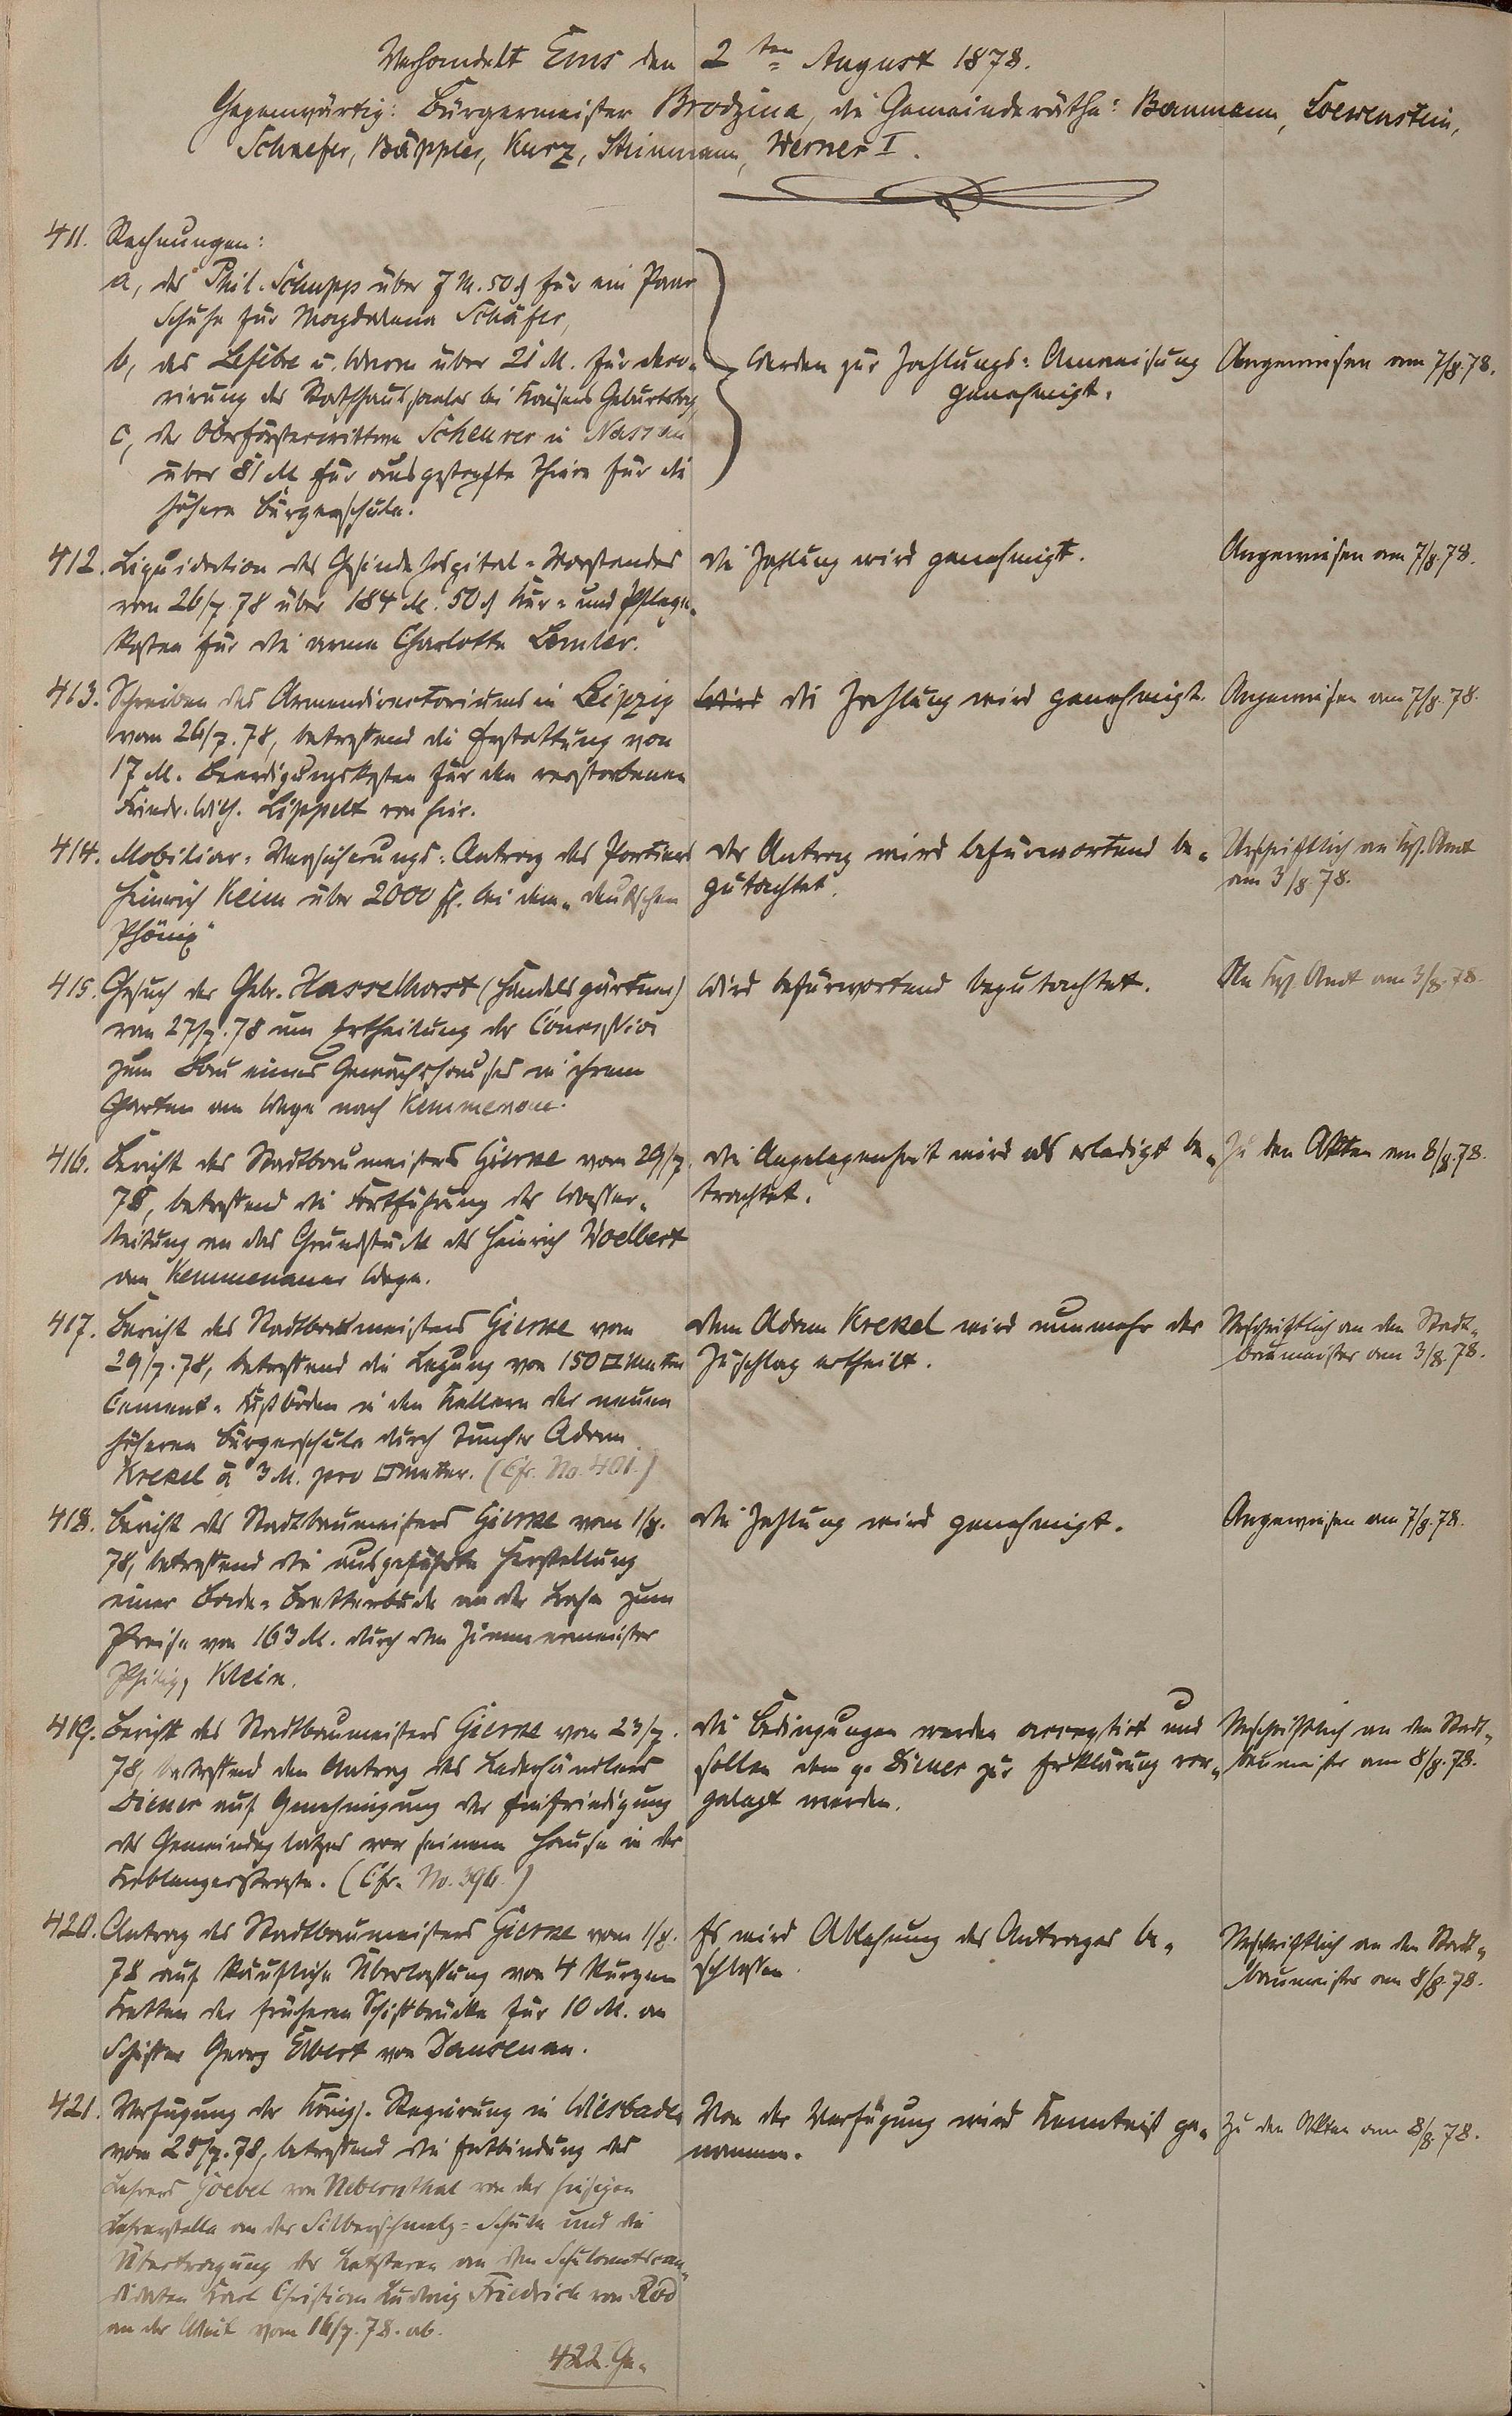 Verhandelt Ems den 2ten August 1878.
Gegenwärtig: Bürgermeister Brodzina, die Gemeinderäthe: Baumann, Loewenstein,
Schaefer, Bäppler, Kurz, Steinmann, Werner I.
411. Rechnungen:
a, des Phil. Schupp über 7 M. 50 ₰ für ein Paar
Schuhe für Magdalena Schäfer,
b, des Lefèbre u. über 21 M. für deco-
rirung des Rathhaussaales bei Kaisers Geburtstag,
c, der Oberförsterwittwe Scheurer in Nassau
über 81 M für ausgestopfte Thiere für die
höhere Bürgerschule.
werden zur Zahlungs-Anweisung
genehmigt.
Angewiesen am 7/8.78.
412. Liquidation des Gesindehospital-Vorstandes
vom 26/7.78 über 184 M. 50 ₰ Kur- und Pflege-
kosten für die arme Charlotte Lemler.
die Zahlung wird genehmigt.
Angewiesen am 7/8.78.
413. Schreiben des Armendirectoriums in Leipzig
vom 26/7.78, betreffend die Erstattung von
17 M. Beerdigungskosten für den verstorbenen
Friedr. Wilh. Lippelt von hier.
Wird die Zahlung wird genehmigt.
Angewiesen am 7/8.78.
414. Mobiliar-Versicherungs-Antrag des Portiers
Heinrich Keim über 2000 fl. bei dem "deutschen
Phönix"
der Antrag wird befürwortend be-
gutachtet.
Urschriftlich an Kgl. Amt
am 3/8.78.
415. Gesuch der Gebr. Hasselhorst (Handelsgärtner)
vom 27/7.78 um Ertheilung der Concession
zum Bau eines Gewächshauses in ihrem
Garten am Wege nach Kemmenau.
Wird befürwortend begutachtet.
An Kgl. Amt am 3/8.78.
416. Bericht des Stadtbaumeisters Gierse vom 29/7.
78, betreffend die Fortführung der Wasser-
leitung an das Grundstück des Heinrich Woelbert
am Kemmenauer Wege.
die Angelegenheit wird als erledigt be-
trachtet.
Zu den Akten am 8/8.78.
417. Bericht des Stadtbaumeisters Gierse vom
29/7.78, betreffend die Legung von 150 □Meter
Cement-Fußböden in den Kellern der neuen
höheren Bürgerschule durch Tüncher Adam
Krekel à 3 M. pro □Meter. (Cfr. No. 401.)
dem Adam Krekel wird nunmehr der
Zuschlag ertheilt.
Urschriftlich an den Stadt-
baumeister am 3/8.78.
418. Bericht des Stadtbaumeisters Gierse vom 1/8.
78, betreffend die ausgeführte Herstellung
einer Bade-Bretterbude an der Lahn zum
Preise von 163 M. durch den Zimmermeister
Philipp Klein.
die Zahlung wird genehmigt.
Angewiesen am 7/8.78.
419. Bericht des Stadtbaumeisters Gierse vom 23/7.
78, betreffend den Antrag des Lederhändlers
Diener auf Genehmigung der Einfriedigung
des Gemeindeplatzes vor seinem Hause in der
Koblenzerstraße. (Cfr. No. 396.)
die Bedingungen werden acceptirt und
sollen dem p. Diener zur Erklärung vor-
gelegt werden.
Urschriftlich an den Stadt-
baumeister am 8/8.78.
420. Antrag des Stadtbaumeisters Gierse vom 1/8.
78 auf käufliche Überlassung von 4 kurzen
Ketten der früheren Schiffbrücke für 10 M. an
Schiffer Georg Elbert von Dausenau.
Es wird Ablehnung des Antrages be-
schlossen.
Urschriftlich an den Stadt-
baumeister am 8/8.78.
421. Verfügung der Königl. Regierung in Wiesbaden
vom 25/7.78, betreffend die Entbindung des
Lehrers Goebel von Niederthal von der hiesigen
Lehrerstelle an der Silberschmelz-Schule und die
Übertragung der Letzteren an den Schulamtscan-
didaten Karl Christian Ludwig Friedrich von Rod
an der Weil vom 16/7.78. ab.
Von der Verfügung wird Kenntniß ge-
nommen.
Zu den Akten am 8/8.78.
422. Ge-